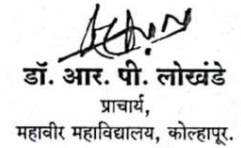 डॉ. आर. पी. लोखंडे
प्राचार्य,
महावीर महाविद्यालय, कोल्हापूर.